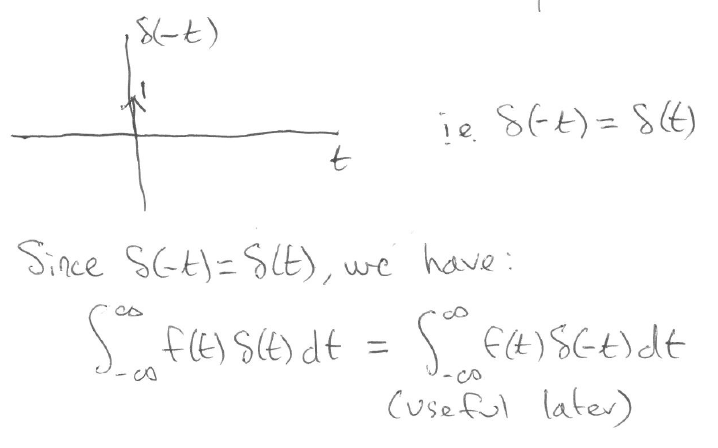 δ(-t)
1
t
ie δ(-t) = δ(t)
Since δ(-t) = δ(t), we have:
∫_{-∞}^{∞} f(t) δ(t) dt = ∫_{-∞}^{∞} f(t) δ(-t) dt
(useful later)